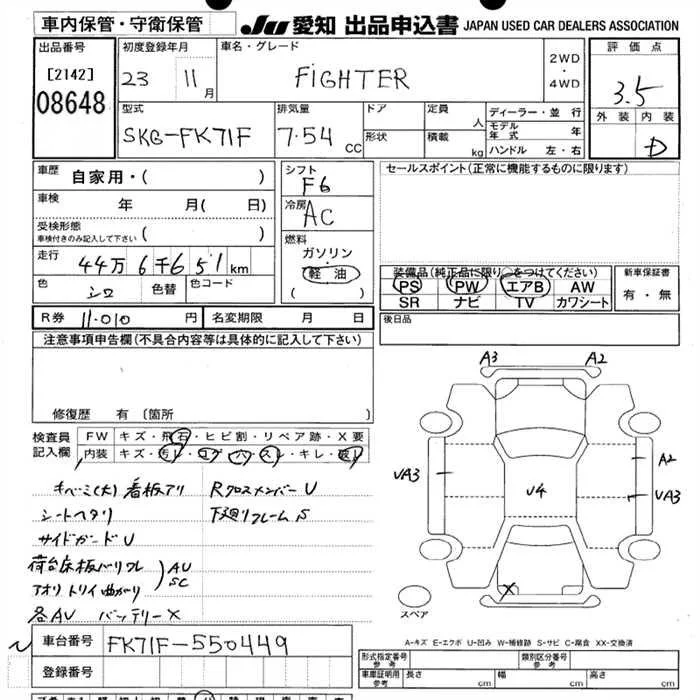 車内保管・守衛保管
JU 愛知 出品申込書 JAPAN USED CAR DEALERS ASSOCIATION
出品番号 初度登録年月 車名・グレード 評価点
[2142] 23 11月 FIGHTER 2WD・4WD 3.5
08648
型式 排気量 ドア 定員 人 ディーラー・並行 外装 内装
SKG-FK71F 7.54 CC 形状 積載 kg モデル年式 年 D
ハンドル 左・右
車歴 自家用・( ) シフト F6 セールスポイント(正常に機能するものに限ります)
車検 年 月( 日) 冷房 AC
受検形態 車検付きのみ記入して下さい ( )
燃料 ガソリン・軽油 ( )
走行 44万6千651km
色 シロ 色替 色コード
装備品(純正品に限り○をつけてください) 新車保証書
PS PW エアB AW 有・無
SR ナビ TV カワシート
R券 11.010 円 名変期限 月 日 後日品
注意事項申告欄(不具合内容等は具体的に記入して下さい)
修復歴 有 〔箇所
A3 A2
検査員記入欄 FW キズ・飛石・ヒビ割・リペア跡・X要
内装 キズ・汚レ・コゲ・穴・スレ・キレ・破レ
UA3 U4 A2
UA3
キベミ(大) 看板アリ Rクロスメンバー U
シートヘタリ 下廻リフレーム S
サイドガード U
荷台床板バリワレ AU
アオリ トリイ曲がり SC
各AU バッテリー X
X
スペア
A-キズ E-エクボ U-凹み W-補修跡 S-サビ C-腐食 XX-交換済
車台番号 FK71F-550449
登録番号
形式指定番号 参考 類別区分番号 参考
車庫証明用 参考 長さ cm 幅 cm 高さ cm